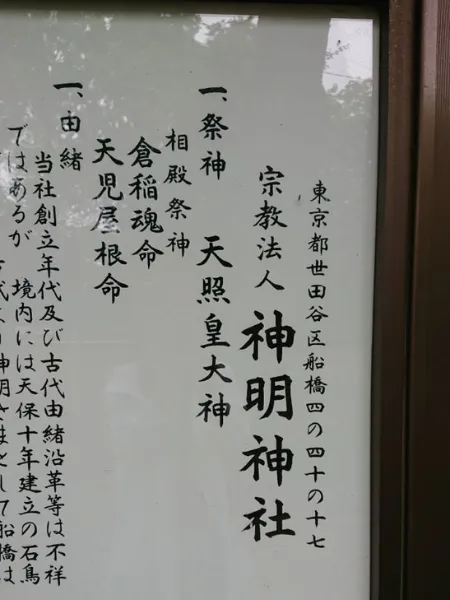 東京都世田谷区船橋四の四十の十七
宗教法人 神明神社
一、祭神 天照皇大神
相殿祭神
倉稲魂命
天児屋根命
一、由緒
当社創立年代及び古代由緒沿革等は不祥
ではあるが 境内には天保十年建立の石鳥